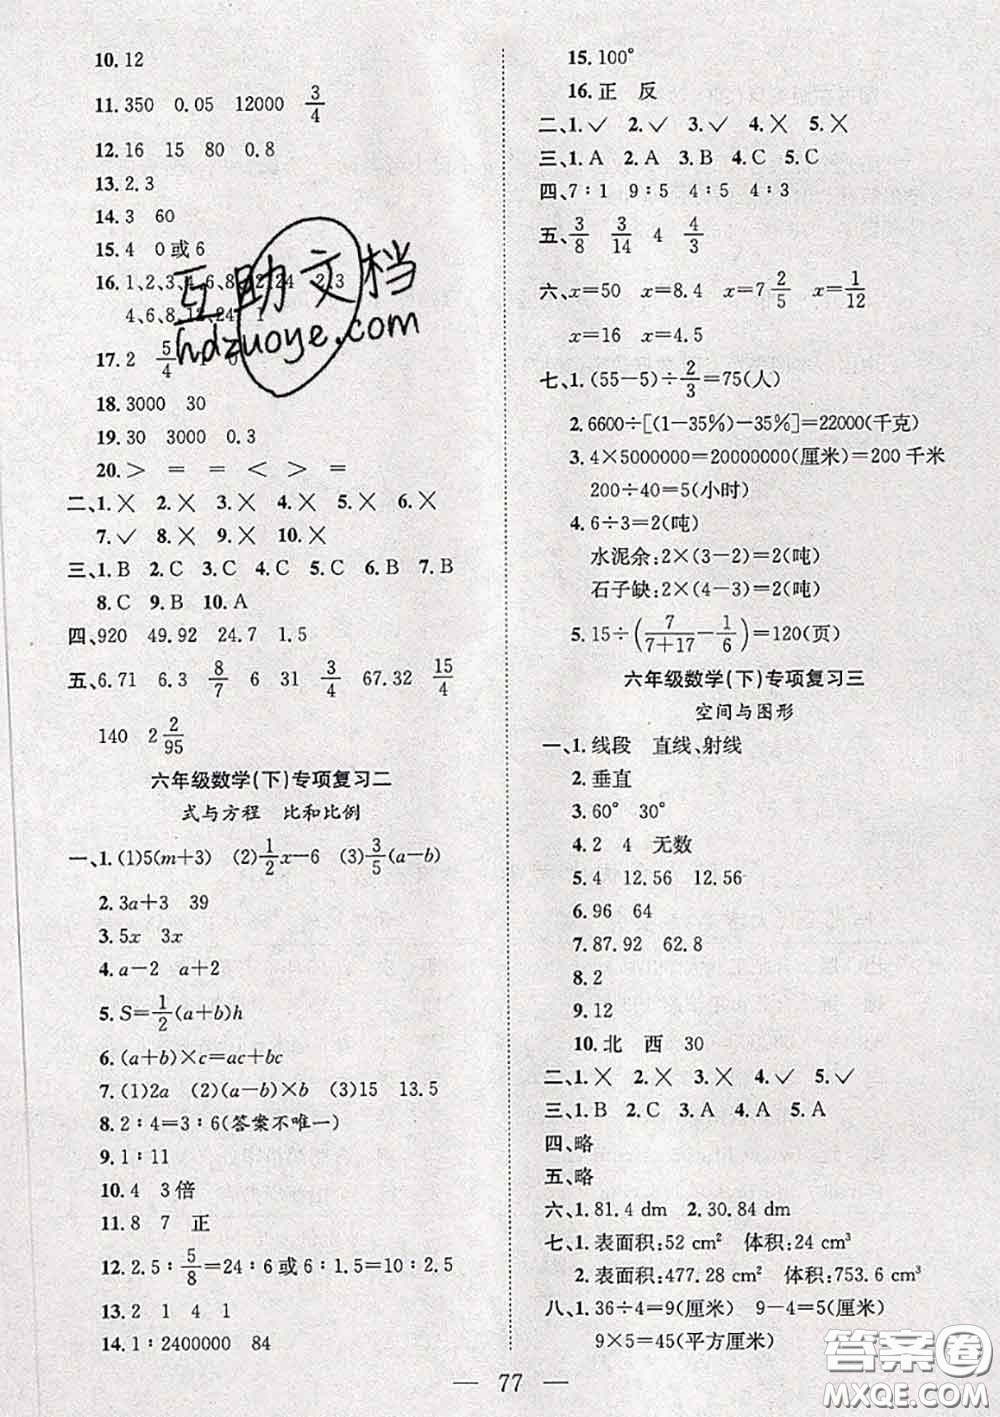 10. 12
11. 350 0.05 12000 3/4
12. 16 15 80 0.8
13. 2、3
14. 3 60
15. 4 0或6
16. 1、2、3、4、6、8、12、24 2、3
4、6、8、12、24 1
17. 2 5/4 1 0
18. 3000 30
19. 30 3000 0.3
20. > = = < > =
二、1. ╳ 2. ╳ 3. ╳ 4. ╳ 5. ╳ 6. ╳
7. ✓ 8. ╳ 9. ╳ 10. ╳
三、1. B 2. C 3. C 4. C 5. C 6. B 7. B
8. C 9. B 10. A
四、920 49.92 24.7 1.5
五、6.71 6.3 8/7 6 31 3/4 67.32 15/4
140 2 2/95
六年级数学(下)专项复习二
式与方程 比和比例
一、1. (1)5(m+3) (2)1/2x-6 (3)3/5(a-b)
2. 3a+3 39
3. 5x 3x
4. a-2 a+2
5. S=1/2(a+b)h
6. (a+b)×c=ac+bc
7. (1)2a (2)(a-b)×b (3)15 13.5
8. 2∶4=3∶6(答案不唯一)
9. 1∶11
10. 4 3倍
11. 8 7 正
12. 2.5∶5/8=24∶6或6∶1.5=10∶2.5
13. 2 1 4 1
14. 1∶2400000 84
15. 100°
16. 正 反
二、1. ✓ 2. ✓ 3. ✓ 4. ╳ 5. ╳
三、1. A 2. A 3. B 4. C 5. C
四、7∶1 9∶5 4∶5 4∶3
五、3/8 3/14 4 4/3
六、x=50 x=8.4 x=7 2/5 x=1/12
x=16 x=4.5
七、1. (55-5)÷2/3=75(人)
2. 6600÷[(1-35%)-35%]=22000(千克)
3. 4×5000000=20000000(厘米)=200千米
200÷40=5(小时)
4. 6÷3=2(吨)
水泥余:2×(3-2)=2(吨)
石子缺:2×(4-3)=2(吨)
5. 15÷(7/7+17-1/6)=120(页)
六年级数学(下)专项复习三
空间与图形
一、1. 线段 直线、射线
2. 垂直
3. 60° 30°
4. 2 4 无数
5. 4 12.56 12.56
6. 96 64
7. 87.92 62.8
8. 2
9. 12
10. 北 西 30
二、1. ╳ 2. ╳ 3. ╳ 4. ✓ 5. ✓
三、1. B 2. C 3. A 4. A 5. A
四、略
五、略
六、1. 81.4 dm 2. 30.84 dm
七、1. 表面积:52 cm² 体积:24 cm³
2. 表面积:477.28 cm² 体积:753.6 cm³
八、1. 36÷4=9(厘米) 9-4=5(厘米)
9×5=45(平方厘米)
— 77 —
互助文档
hdzuoye.com
答案圈
MXQE.COM